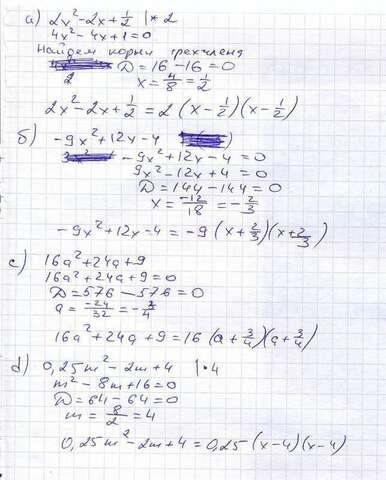 а) 2x² - 2x + 1/2 | * 2
4x² - 4x + 1 = 0
Найдем корни трехчлена
2 D = 16 - 16 = 0
x = 4/8 = 1/2
2x² - 2x + 1/2 = 2 (x - 1/2)(x - 1/2)
б) -9x² + 12x - 4
-9x² + 12x - 4 = 0
9x² - 12x + 4 = 0
D = 144 - 144 = 0
x = -12/18 = -2/3
-9x² + 12x - 4 = -9 (x + 2/3)(x + 2/3)
c) 16a² + 24a + 9
16a² + 24a + 9 = 0
D = 576 - 576 = 0
a = -24/32 = -3/4
16a² + 24a + 9 = 16 (a + 3/4)(a + 3/4)
d) 0,25m² - 2m + 4 | · 4
m² - 8m + 16 = 0
D = 64 - 64 = 0
m = 8/2 = 4
0,25m² - 2m + 4 = 0,25 (x - 4)(x - 4)